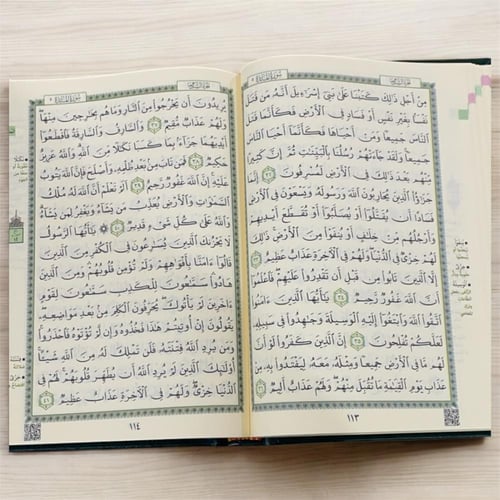 الجزء السادس
سورة المائدة ٥
مِنْ أَجْلِ ذَٰلِكَ كَتَبْنَا عَلَىٰ بَنِيٓ إِسْرَٰٓءِيلَ أَنَّهُۥ مَن قَتَلَ
نَفْسًۢا بِغَيْرِ نَفْسٍ أَوْ فَسَادٍ فِي ٱلْأَرْضِ فَكَأَنَّمَا قَتَلَ
ٱلنَّاسَ جَمِيعًا وَمَنْ أَحْيَاهَا فَكَأَنَّمَآ أَحْيَا ٱلنَّاسَ
جَمِيعًا وَلَقَدْ جَآءَتْهُمْ رُسُلُنَا بِٱلْبَيِّنَٰتِ ثُمَّ إِنَّ كَثِيرًا
مِّنْهُم بَعْدَ ذَٰلِكَ فِي ٱلْأَرْضِ لَمُسْرِفُونَ ٣٢ إِنَّمَا
جَزَٰٓؤُا۟ ٱلَّذِينَ يُحَارِبُونَ ٱللَّهَ وَرَسُولَهُۥ وَيَسْعَوْنَ فِي ٱلْأَرْضِ
فَسَادًا أَن يُقَتَّلُوٓا۟ أَوْ يُصَلَّبُوٓا۟ أَوْ تُقَطَّعَ أَيْدِيهِمْ
وَأَرْجُلُهُم مِّنْ خِلَٰفٍ أَوْ يُنفَوْا۟ مِنَ ٱلْأَرْضِ ذَٰلِكَ
لَهُمْ خِزْيٌ فِي ٱلدُّنْيَا وَلَهُمْ فِي ٱلْءَاخِرَةِ عَذَابٌ عَظِيمٌ ٣٣
إِلَّا ٱلَّذِينَ تَابُوا۟ مِن قَبْلِ أَن تَقْدِرُوا۟ عَلَيْهِمْ فَٱعْلَمُوٓا۟
أَنَّ ٱللَّهَ غَفُورٌ رَّحِيمٌ ٣٤ يَٰٓأَيُّهَا ٱلَّذِينَ ءَامَنُوا۟
ٱتَّقُوا۟ ٱللَّهَ وَٱبْتَغُوٓا۟ إِلَيْهِ ٱلْوَسِيلَةَ وَجَٰهِدُوا۟ فِي سَبِيلِهِۦ
لَعَلَّكُمْ تُفْلِحُونَ ٣٥ إِنَّ ٱلَّذِينَ كَفَرُوا۟ لَوْ أَنَّ
لَهُم مَّا فِي ٱلْأَرْضِ جَمِيعًا وَمِثْلَهُۥ مَعَهُۥ لِيَفْتَدُوا۟ بِهِۦ مِنْ
عَذَابِ يَوْمِ ٱلْقِيَٰمَةِ مَا تُقُبِّلَ مِنْهُمْ وَلَهُمْ عَذَابٌ أَلِيمٌ ٣٦
١١٣
الجزء السادس
سورة المائدة ٥
يُرِيدُونَ أَن يَخْرُجُوا۟ مِنَ ٱلنَّارِ وَمَا هُم بِخَٰرِجِينَ مِنْهَا
وَلَهُمْ عَذَابٌ مُّقِيمٌ ٣٧ وَٱلسَّارِقُ وَٱلسَّارِقَةُ فَٱقْطَعُوٓا۟
أَيْدِيَهُمَا جَزَآءًۢ بِمَا كَسَبَا نَكَٰلًا مِّنَ ٱللَّهِ وَٱللَّهُ عَزِيزٌ
حَكِيمٌ ٣٨ فَمَن تَابَ مِنۢ بَعْدِ ظُلْمِهِۦ وَأَصْلَحَ فَإِنَّ ٱللَّهَ يَتُوبُ
عَلَيْهِ إِنَّ ٱللَّهَ غَفُورٌ رَّحِيمٌ ٣٩ أَلَمْ تَعْلَمْ أَنَّ ٱللَّهَ لَهُۥ مُلْكُ
ٱلسَّمَٰوَٰتِ وَٱلْأَرْضِ يُعَذِّبُ مَن يَشَآءُ وَيَغْفِرُ لِمَن يَشَآءُ
وَٱللَّهُ عَلَىٰ كُلِّ شَيْءٍ قَدِيرٌ ٤٠ ۞ يَٰٓأَيُّهَا ٱلرَّسُولُ
لَا يَحْزُنكَ ٱلَّذِينَ يُسَٰرِعُونَ فِي ٱلْكُفْرِ مِنَ ٱلَّذِينَ
قَالُوٓا۟ ءَامَنَّا بِأَفْوَٰهِهِمْ وَلَمْ تُؤْمِن قُلُوبُهُمْ وَمِنَ ٱلَّذِينَ
هَادُوا۟ سَمَّٰعُونَ لِلْكَذِبِ سَمَّٰعُونَ لِقَوْمٍ
ءَاخَرِينَ لَمْ يَأْتُوكَ يُحَرِّفُونَ ٱلْكَلِمَ مِنۢ بَعْدِ مَوَاضِعِهِۦ
يَقُولُونَ إِنْ أُوتِيتُمْ هَٰذَا فَخُذُوهُ وَإِن لَّمْ تُؤْتَوْهُ فَٱحْذَرُوا۟
وَمَن يُرِدِ ٱللَّهُ فِتْنَتَهُۥ فَلَن تَمْلِكَ لَهُۥ مِنَ ٱللَّهِ شَيْـًٔا
أُو۟لَٰٓئِكَ ٱلَّذِينَ لَمْ يُرِدِ ٱللَّهُ أَن يُطَهِّرَ قُلُوبَهُمْ لَهُمْ فِي
ٱلدُّنْيَا خِزْيٌ وَلَهُمْ فِي ٱلْءَاخِرَةِ عَذَابٌ عَظِيمٌ ٤١
١١٤